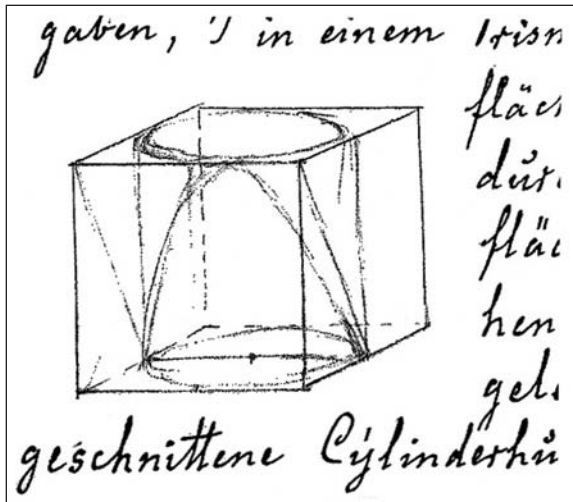 gaben, 's in einem Prism
fläch
dur
fläc
hen
gel
geschnittene Cylinderhü